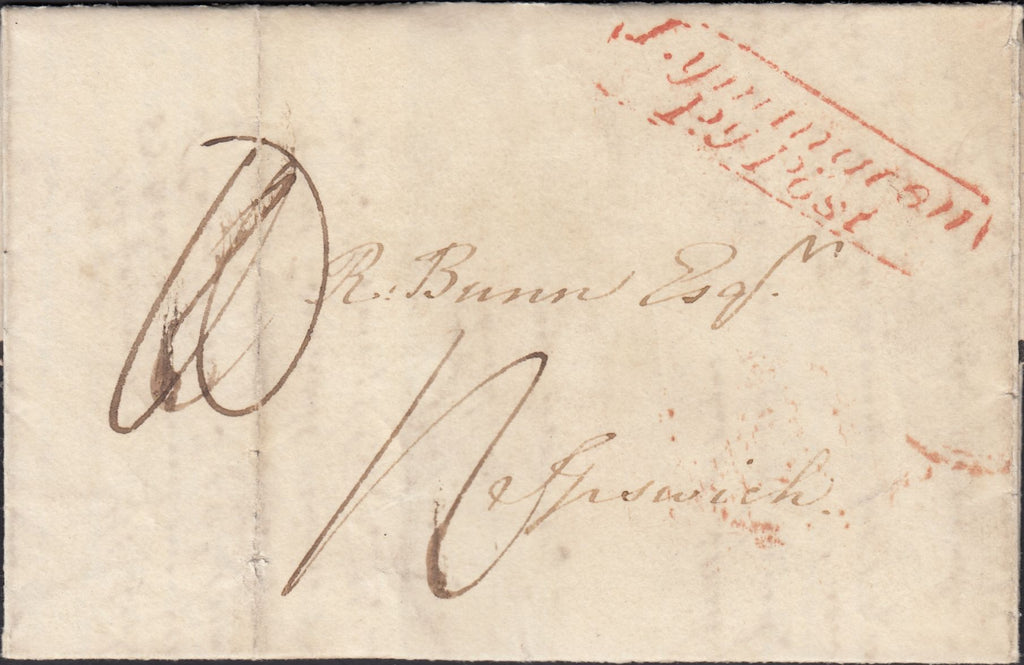 Lymington
Py Post
R. Bunn Esqr.
Ipswich.